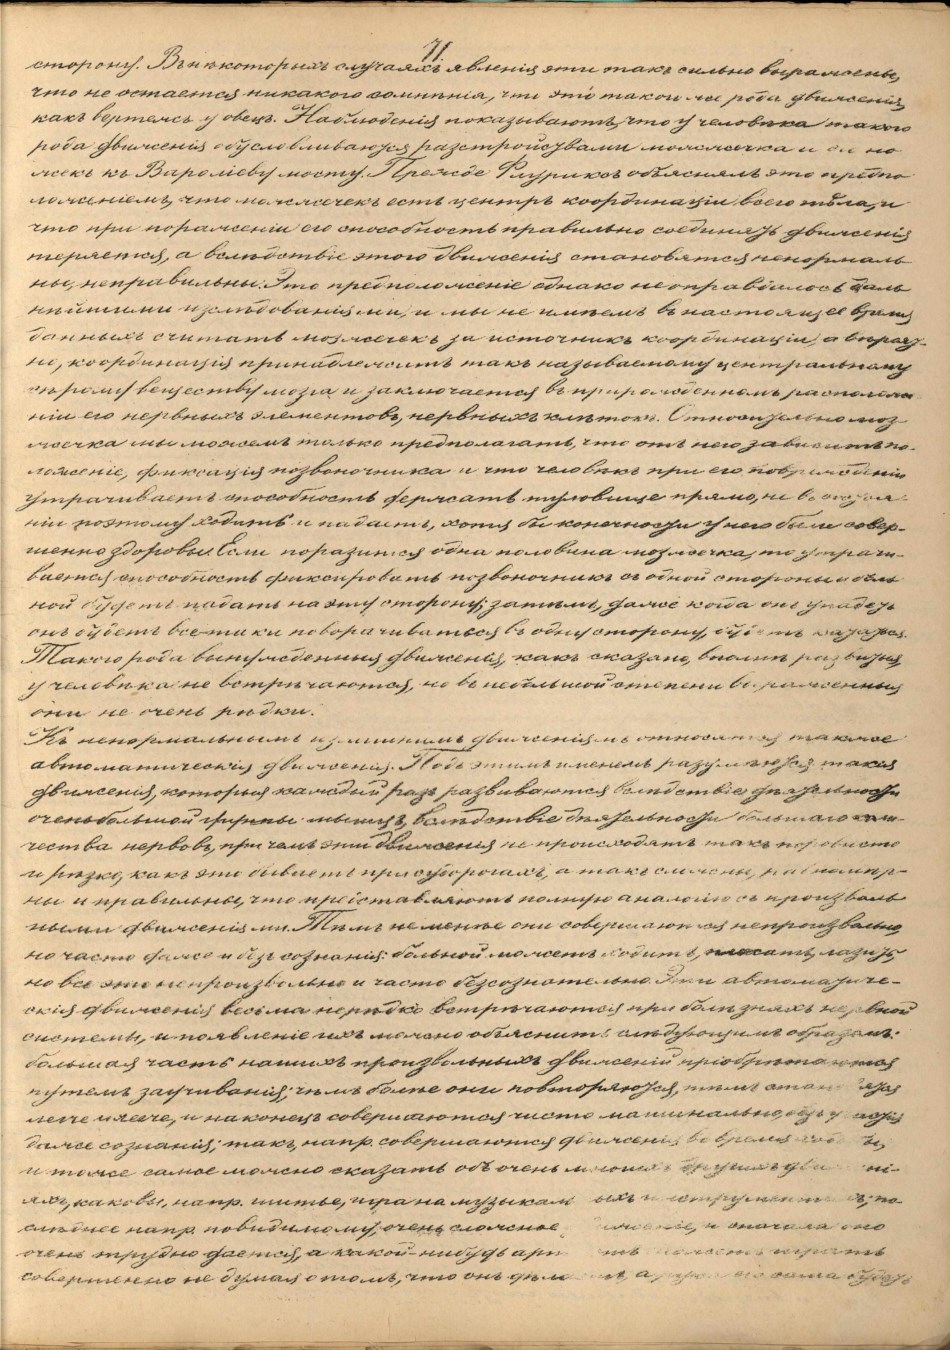 71
сторону. Въ нѣкоторыхъ случаяхъ явленія эти такъ сильно выражены,
что не остается никакого сомнѣнія, что это такого же рода движенія,
какъ вертежъ у овецъ. Наблюденія показываютъ, что у человѣка такого
рода движенія обусловливаются разстройствами мозжечка и его но
жекъ къ Вароліеву мосту. Прежде объясняли это предпо
ложеніемъ, что мозжечекъ есть центръ координаціи всего тѣла, и
что при пораженіи его способность правильно соединять движенія
теряется, а вслѣдствіе этого движенія становятся ненормаль
ны, неправильны. Это предположеніе однако не оправдалось даль
нѣйшими изслѣдованіями, и мы не имѣемъ въ настоящее время
данныхъ считать мозжечекъ за источникъ координаціи, а вѣроят-
но, координація принадлежитъ такъ называемому центральному
сѣрому веществу мозга и заключается въ прирожденномъ располож
ніи его нервныхъ элементовъ, нервныхъ клѣтокъ. Относительно моз
жечка мы можемъ только предполагать, что отъ него зависитъ по-
ложеніе, фиксація позвоночника и что человѣкъ при его поврежденіи
утрачиваетъ способность держать туловище прямо, не въ состоя-
ніи поэтому ходить и падаетъ, хотя бы конечности у него были совер-
шенно здоровы. Если поразится одна половина мозжечка, то утрачи-
вается способность фиксировать позвоночникъ съ одной стороны и боль
ной будетъ падать на эту сторону; затѣмъ, даже когда онъ упадетъ
онъ будетъ все-таки поворачиваться въ одну сторону, будетъ кататься.
Такого рода вынужденныя движенія, какъ сказано, вполнѣ развитыя
у человѣка не встрѣчаются, но въ небольшой степени выраженныя
они не очень рѣдки.
Къ ненормальнымъ излишнимъ движеніямъ относятся также
автоматическія движенія. Подъ этимъ именемъ разумѣются такія
движенія, которыя каждый разъ развиваются вслѣдствіе дѣятельности
очень большой группы мышцъ, вслѣдствіе дѣятельности большаго коли-
чества нервовъ, при чемъ эти движенія не происходятъ такъ порывисто
и рѣзко, какъ это бываетъ при судорогахъ, а такъ сложны, равномѣр-
ны и правильны, что представляютъ полную аналогію съ произволь
ными движеніями. Тѣмъ не менѣе они совершаются непроизвольно,
но часто даже и безъ сознанія: больной можетъ ходить, плясать, лазить,
но все это непроизвольно и часто безсознательно. Эти автоматиче-
скія движенія весьма нерѣдко встрѣчаются при болѣзняхъ нервной
системы, и появленіе ихъ можно объяснить слѣдующимъ образомъ:
большая часть нашихъ произвольныхъ движеній пріобрѣтаются
путемъ заучиванія; чѣмъ болѣе они повторяются, тѣмъ становятся
легче и легче, и наконецъ совершаются чисто машинально, безъ участія
даже сознанія; такъ, напр. совершаются движенія во время ходьбы,
и тоже самое можно сказать объ очень многихъ другихъ движені-
яхъ, каковы, напр. шитье, игра на музыкальныхъ инструментахъ; по-
слѣднее напр. повидимому, очень сложное движеніе, и сначала оно
очень трудно дается, а какой-нибудь артистъ можетъ играть
совершенно не думая о томъ, что онъ дѣлаетъ, а рука его сама будетъ